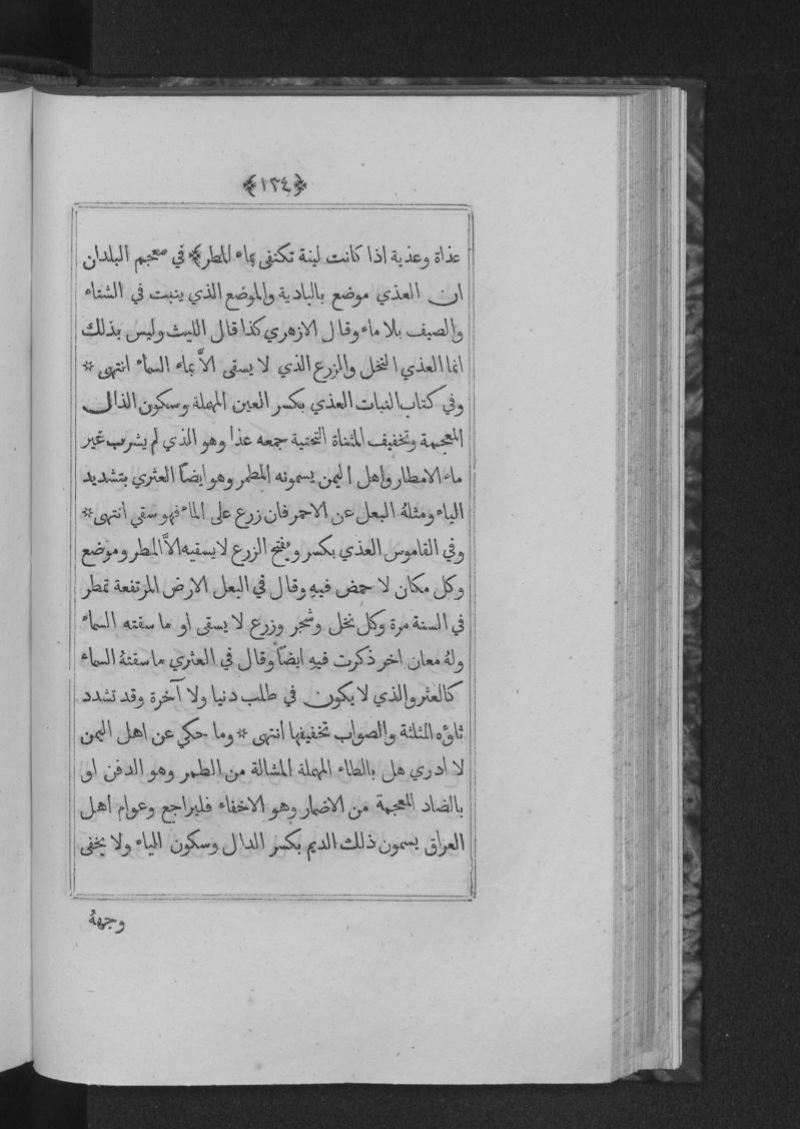 ﴿١٣٤﴾
عذاة وعذية اذا كانت لينة تكتفى بماء المطر﴾ في معجم البلدان
ان العذي موضع بالبادية والموضع الذي ينبت في الشتاء
والصيف بلا ماء وقال الازهري كذا قال الليث وليس بذلك
انما العذي النخل والزرع الذي لا يسقى الاَّ بماء السماء انتهى *
وفي كتاب النبات العذي بكسر العين المهملة وسكون الذال
المعجمة وتخفيف المثناة التحتية جمعه عذا وهو الذي لم يشرب غير
ماء الامطار واهل اليمن يسمونه المطمر وهو ايضاً العثري بتشديد
الياء ومثلهُ البعل عن الاحمر فان زرع على الماء فهو سقي انتهى *
وفي القاموس العذي بكسر ويفتح الزرع لا يسقيه الاَّ المطر وموضع
وكل مكان لا حمض فيهِ وقال في البعل الارض المرتفعة تمطر
في السنة مرة وكل نخل وشجر وزرع لا يسقى او ما سقته السماء
ولهُ معان اخر ذكرت فيهِ ايضاً وقال في العثري ما سقتهُ السماء
كالعثر والذي لا يكون في طلب دنيا ولا آخرة وقد تشدد
ثاؤه المثلثة والصواب تخفيفها انتهى * وما حكي عن اهل اليمن
لا ادري هل بالطاء المهملة المشالة من الطمر وهو الدفن او
بالضاد المعجمة من الاضمار وهو الاخفاء فليراجع وعوام اهل
العراق يسمون ذلك الديم بكسر الدال وسكون الياء ولا يخفى
وجههُ